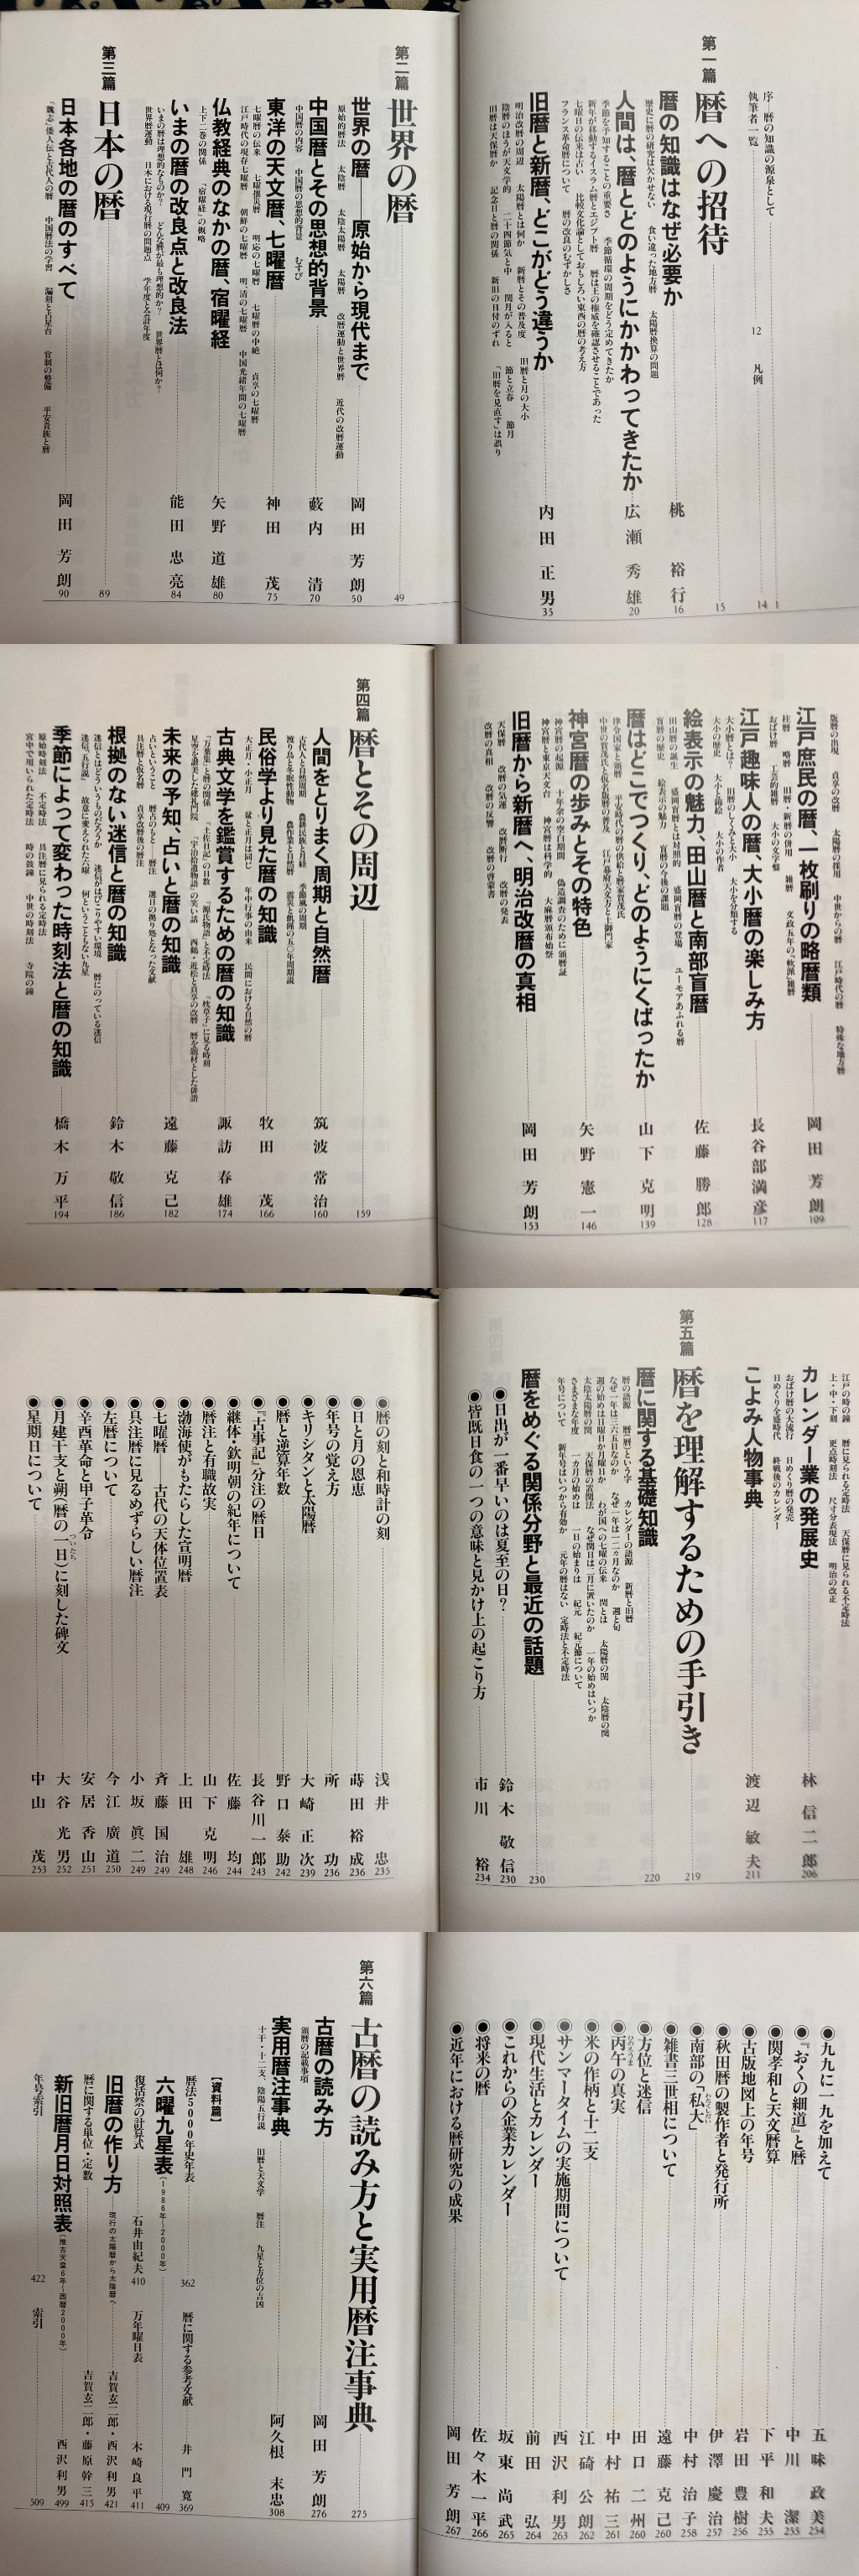 序―暦の知識の源泉として 1
執筆者一覧 12
凡例 14
第一篇
暦への招待 15
暦の知識はなぜ必要か 桃 裕行 16
歴史に暦の研究は欠かせない 食い違った地方暦 太陽暦換算の問題
人間は、暦とどのようにかかわってきたか 広瀬秀雄 20
季節を予知することの重要さ 季節循環の周期をどう定めてきたか
新年が移動するイスラム暦とエジプト暦 暦は王の権威を確認させることであった
七曜日の伝来は占い 比較文化論としておもしろい東西の暦の考え方
フランス革命暦について 暦の改良のむずかしさ
旧暦と新暦、どこがどう違うか 内田正男 35
明治改暦の周辺 太陽暦とは何か 新暦とその普及度 旧暦と月の大小
陰暦のほうが天文学的 二十四節気と中 閏月が入ると 節と立春 節月
旧暦は天保暦か 記念日と暦の関係 新旧の日付のずれ 「旧暦を見直す」は誤り
第二篇
世界の暦 49
世界の暦――原始から現代まで 岡田芳朗 50
原始的暦法 太陰暦 太陰太陽暦 太陽暦 改暦運動と世界暦 近代の改暦運動
中国暦とその思想的背景 藪内 清 70
中国暦の内容 中国暦の思想的背景 むすび
東洋の天文暦、七曜暦 神田 茂 75
七曜暦の伝来 七曜攘災暦 明応の七曜暦 七曜暦の中絶 貞享の七曜暦
江戸時代の現存七曜暦 朝鮮の七曜暦 明、清の七曜暦 中国光緒年間の七曜暦
仏教経典のなかの暦、宿曜経 矢野道雄 80
上下二巻の関係 『宿曜経』の概略
いまの暦の改良点と改良法 能田忠亮 84
いまの暦は理想的なものか？ どんな暦が最も理想的か？ 世界暦とは何か？
世界暦運動 日本における現行暦の問題点 学年度と会計年度
第三篇
日本の暦 89
日本各地の暦のすべて 岡田芳朗 90
『魏志』倭人伝と古代人の暦 中国暦法の学習 漏刻と占星台 官制の整備 平安貴族と暦
版暦の出現 貞享の改暦 太陽暦の採用 中世からの暦 江戸時代の暦 特殊な地方暦
江戸庶民の暦、一枚刷りの略暦類 岡田芳朗 109
柱暦 略暦 旧暦・新暦の併用 雑暦 文政五年の「軟派」雑暦
おばけ暦 工芸的雑暦 大小の文字盤
江戸趣味人の暦、大小暦の楽しみ方 長谷部満彦 117
大小暦とは？ 旧暦のしくみと大小 大小を分類する
大小の歴史 大小と錦絵 大小の作者
絵表示の魅力、田山暦と南部盲暦 佐藤勝郎 128
田山暦の誕生 盛岡盲暦とは対照的 盛岡盲暦の登場 ユーモアあふれる暦
盲暦の歴史 絵表示の魅力 盲暦の今後の課題
暦はどこでつくり、どのようにくばったか 山下克明 139
律令国家と頒暦 平安時代の暦の供給と暦家賀茂氏
中世の賀茂氏と仮名版暦の普及 江戸幕府天文方と土御門家
神宮暦の歩みとその特色 矢野憲一 146
神宮暦の起源 十年余の空白期間 偽造調査のために頒暦証
神宮暦と東京天文台 神宮暦は科学的 大麻暦頒布始祭
旧暦から新暦へ、明治改暦の真相 岡田芳朗 153
天保暦 改暦の気運 改暦断行 改暦の発表
改暦の真相 改暦の反響 改暦の啓蒙書
第四篇
暦とその周辺 159
人間をとりまく周期と自然暦 筑波常治 160
古代人と自然周期 農耕民族と月経 季節風の周期
渡り鳥と冬眠性動物 農作業と自然暦 震災と飢饉の五〇年周期説
民俗学より見た暦の知識 牧田 茂 166
大正月・小正月 盆と正月は同じ 年中行事の由来 民間における自然の暦
古典文学を鑑賞するための暦の知識 諏訪春雄 174
『万葉集』と暦の関係 『土佐日記』の日数 『源氏物語』と不定時法 『枕草子』に見る時刻
星空を讃美した建礼門院 『宇治拾遺物語』の笑い話 西鶴・近松と貞享の改暦 暦を題材とした俳諧
未来の予知、占いと暦の知識 遠藤克己 182
占いということ 暦占のもと――暦注 選日の拠り処となった文献
具注暦と仮名暦 貞享改暦後の暦注
根拠のない迷信と暦の知識 鈴木敬信 186
迷信とはどういうものだろうか 迷信がはびこりやすい環境 暦にのっている迷信
迷信「五行説」 故意に変えられた六曜 何ということもない九星
季節によって変わった時刻法と暦の知識 橋本万平 194
原始時刻法 不定時法 具注暦に見られる定時法
宮中で用いられた定時法 時の鼓鐘 中世の時刻法 寺院の鐘
江戸の時の鐘 暦に見られる定時法 天保暦に見られる不定時法
上・中・下刻 更点時刻法 尺寸分表現法 明治の改正
カレンダー業の発展史 林 信二郎 206
おばけ暦の大流行 日めくり暦の発売
日めくりを盛時代 終戦後のカレンダー
こよみ人物事典 渡辺敏夫 211
第五篇
暦を理解するための手引き 219
暦に関する基礎知識 220
暦の語源 暦（厤）という字 カレンダーの語源 新暦と旧暦
なぜ一年は三六五日なのか なぜ一年は一二ヵ月なのか 週と旬
週の始めは日曜日か月曜日か わが国への七曜の伝来 閏とは 太陽暦の閏 太陰暦の閏
太陰太陽暦の閏 天保暦の置閏法 なぜ閏日は二月に置いたのか 一年の始めはいつか
さまざまな年度 一ヵ月の始めは 一日の始まりは 紀元 紀元節について
年号について 新年号はいつから有効か 元年の暦はない 定時法と不定時法
暦をめぐる関係分野と最近の話題 230
◉日出が一番早いのは夏至の日？ 鈴木敬信 230
◉皆既日食の一つの意味と見かけ上の起こり方 市川 裕 234
◉暦の刻と和時計の刻 浅井 忠 235
◉日と月の恩恵 蒔田裕成 236
◉年号の覚え方 所 功 236
◉キリシタンと太陽暦 大崎正次 239
◉暦と逆算年数 野口泰助 242
◉『古事記』分注の暦日 長谷川一郎 243
◉継体・欽明朝の紀年について 佐藤 均 244
◉暦注と有職故実 山下克明 246
◉渤海使がもたらした宣明暦 上田 雄 248
◉七曜暦――古代の天体位置表 斉藤国治 249
◉具注暦に見るめずらしい暦注 小坂眞二 249
◉左暦について 今江廣道 250
◉辛酉革命と甲子革令 安居香山 251
◉月建干支と朔（暦の一日）に刻した碑文 大谷光男 252
ついたち
◉星期日について 中山 茂 253
◉九九に一九を加えて 五味政美 254
◉『おくの細道』と暦 中川 潔 255
◉関孝和と天文暦算 下平和夫 255
◉古版地図上の年号 岩田豊樹 256
◉秋田暦の製作者と発行所 伊澤慶治 257
◉南部の「私大」 中村治子 258
わたくしだい
◉雑書三世相について 遠藤克己 260
◉方位と迷信 田口二州 260
◉丙午の真実 中村祐三 261
ひのえうま
◉米の作柄と十二支 江碕公朗 262
◉サンマータイムの実施期間について 西沢利男 263
◉現代生活とカレンダー 前田 弘 264
◉これからの企業カレンダー 坂東尚武 265
◉将来の暦 佐々木一平 266
◉近年における暦研究の成果 岡田芳朗 267
第六篇
古暦の読み方と実用暦注事典 275
古暦の読み方 岡田芳朗 276
頒暦の記載事項
実用暦注事典 阿久根末忠 308
十干・十二支、陰陽五行説 旧暦と天文学 暦注 九星と方位の吉凶
【資料篇】
暦法5000年史年表 362
暦に関する参考文献 井門 寛 369
六曜九星表（1986年～2000年） 409
復活祭の計算式 石井由紀夫 410
万年曜日表 木崎良平 411
旧暦の作り方――現行の太陽暦から太陰暦へ 古賀玄二郎・西沢利男 421
暦に関する単位・定数 古賀玄二郎・藤原幹三 415
新旧暦月日対照表（推古天皇6年～西暦2000年） 西沢利男 499
年号索引 422
索引 509